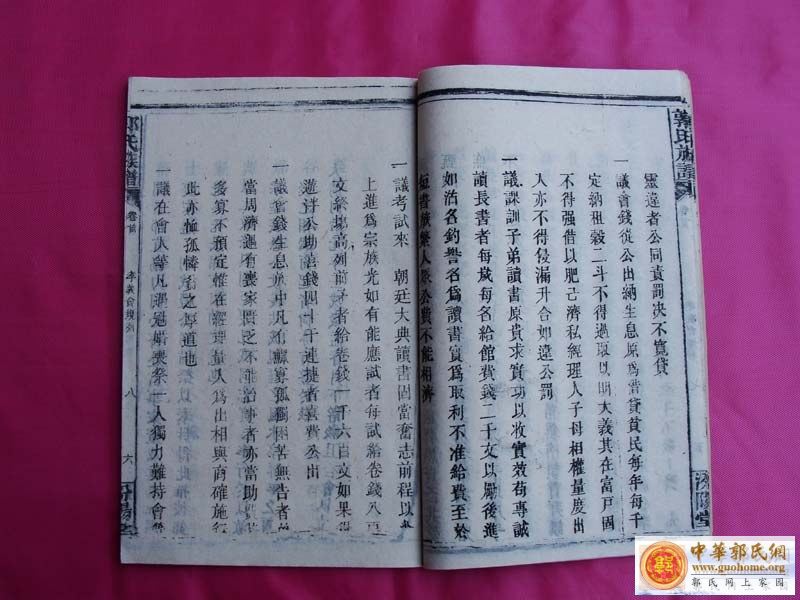 郭氏族譜
汾陽堂
靈違者公同責罰決不寬貸
一議會錢從公出納生息原為借貸貧民每年每千
定納租穀二斗不得過取以明大義其在富戶固
不得强借以肥己濟私經理人子母相權量度出
入亦不得侵漏升合如違公罰
一議課訓子弟讀書原貴求實功以收實效苟專誠
讀長書者每歲每名給館費錢二千文以勵後進
如沽名釣譽名為讀書實為取利不准給費至於
短書族繁人眾公費不能相濟
一議考試來 朝廷大典讀書固當奮志前程以
上進為宗族光如有能應試者每試給卷錢八百
文終場高列前十名者給卷錢一千六百文如果
遊泮公助喜錢四十千連捷者喜費公出
一議會錢生息族中凡有鰥寡孤獨困苦無告者
當周濟遇有喪家間乏不能治事者亦當助
多寡不預定惟在經理量入為出相與商確施行
此亦恤孤憐窮之厚道也
一議在會人等凡遇冠婚喪祭一人獨力難持會
郭氏族譜
卷首
孝義會規列
八
六
汾陽
中華郭氏網
www.guohome.org
郭氏网上家园